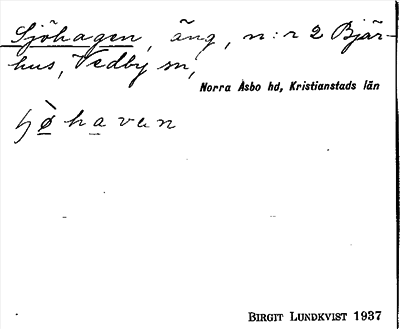 Sjöhagen, äng, n:r 2 Bjär-
hus, Vedby sn,
Norra Åsbo hd, Kristianstads län
BIRGIT LUNDKVIST 1937